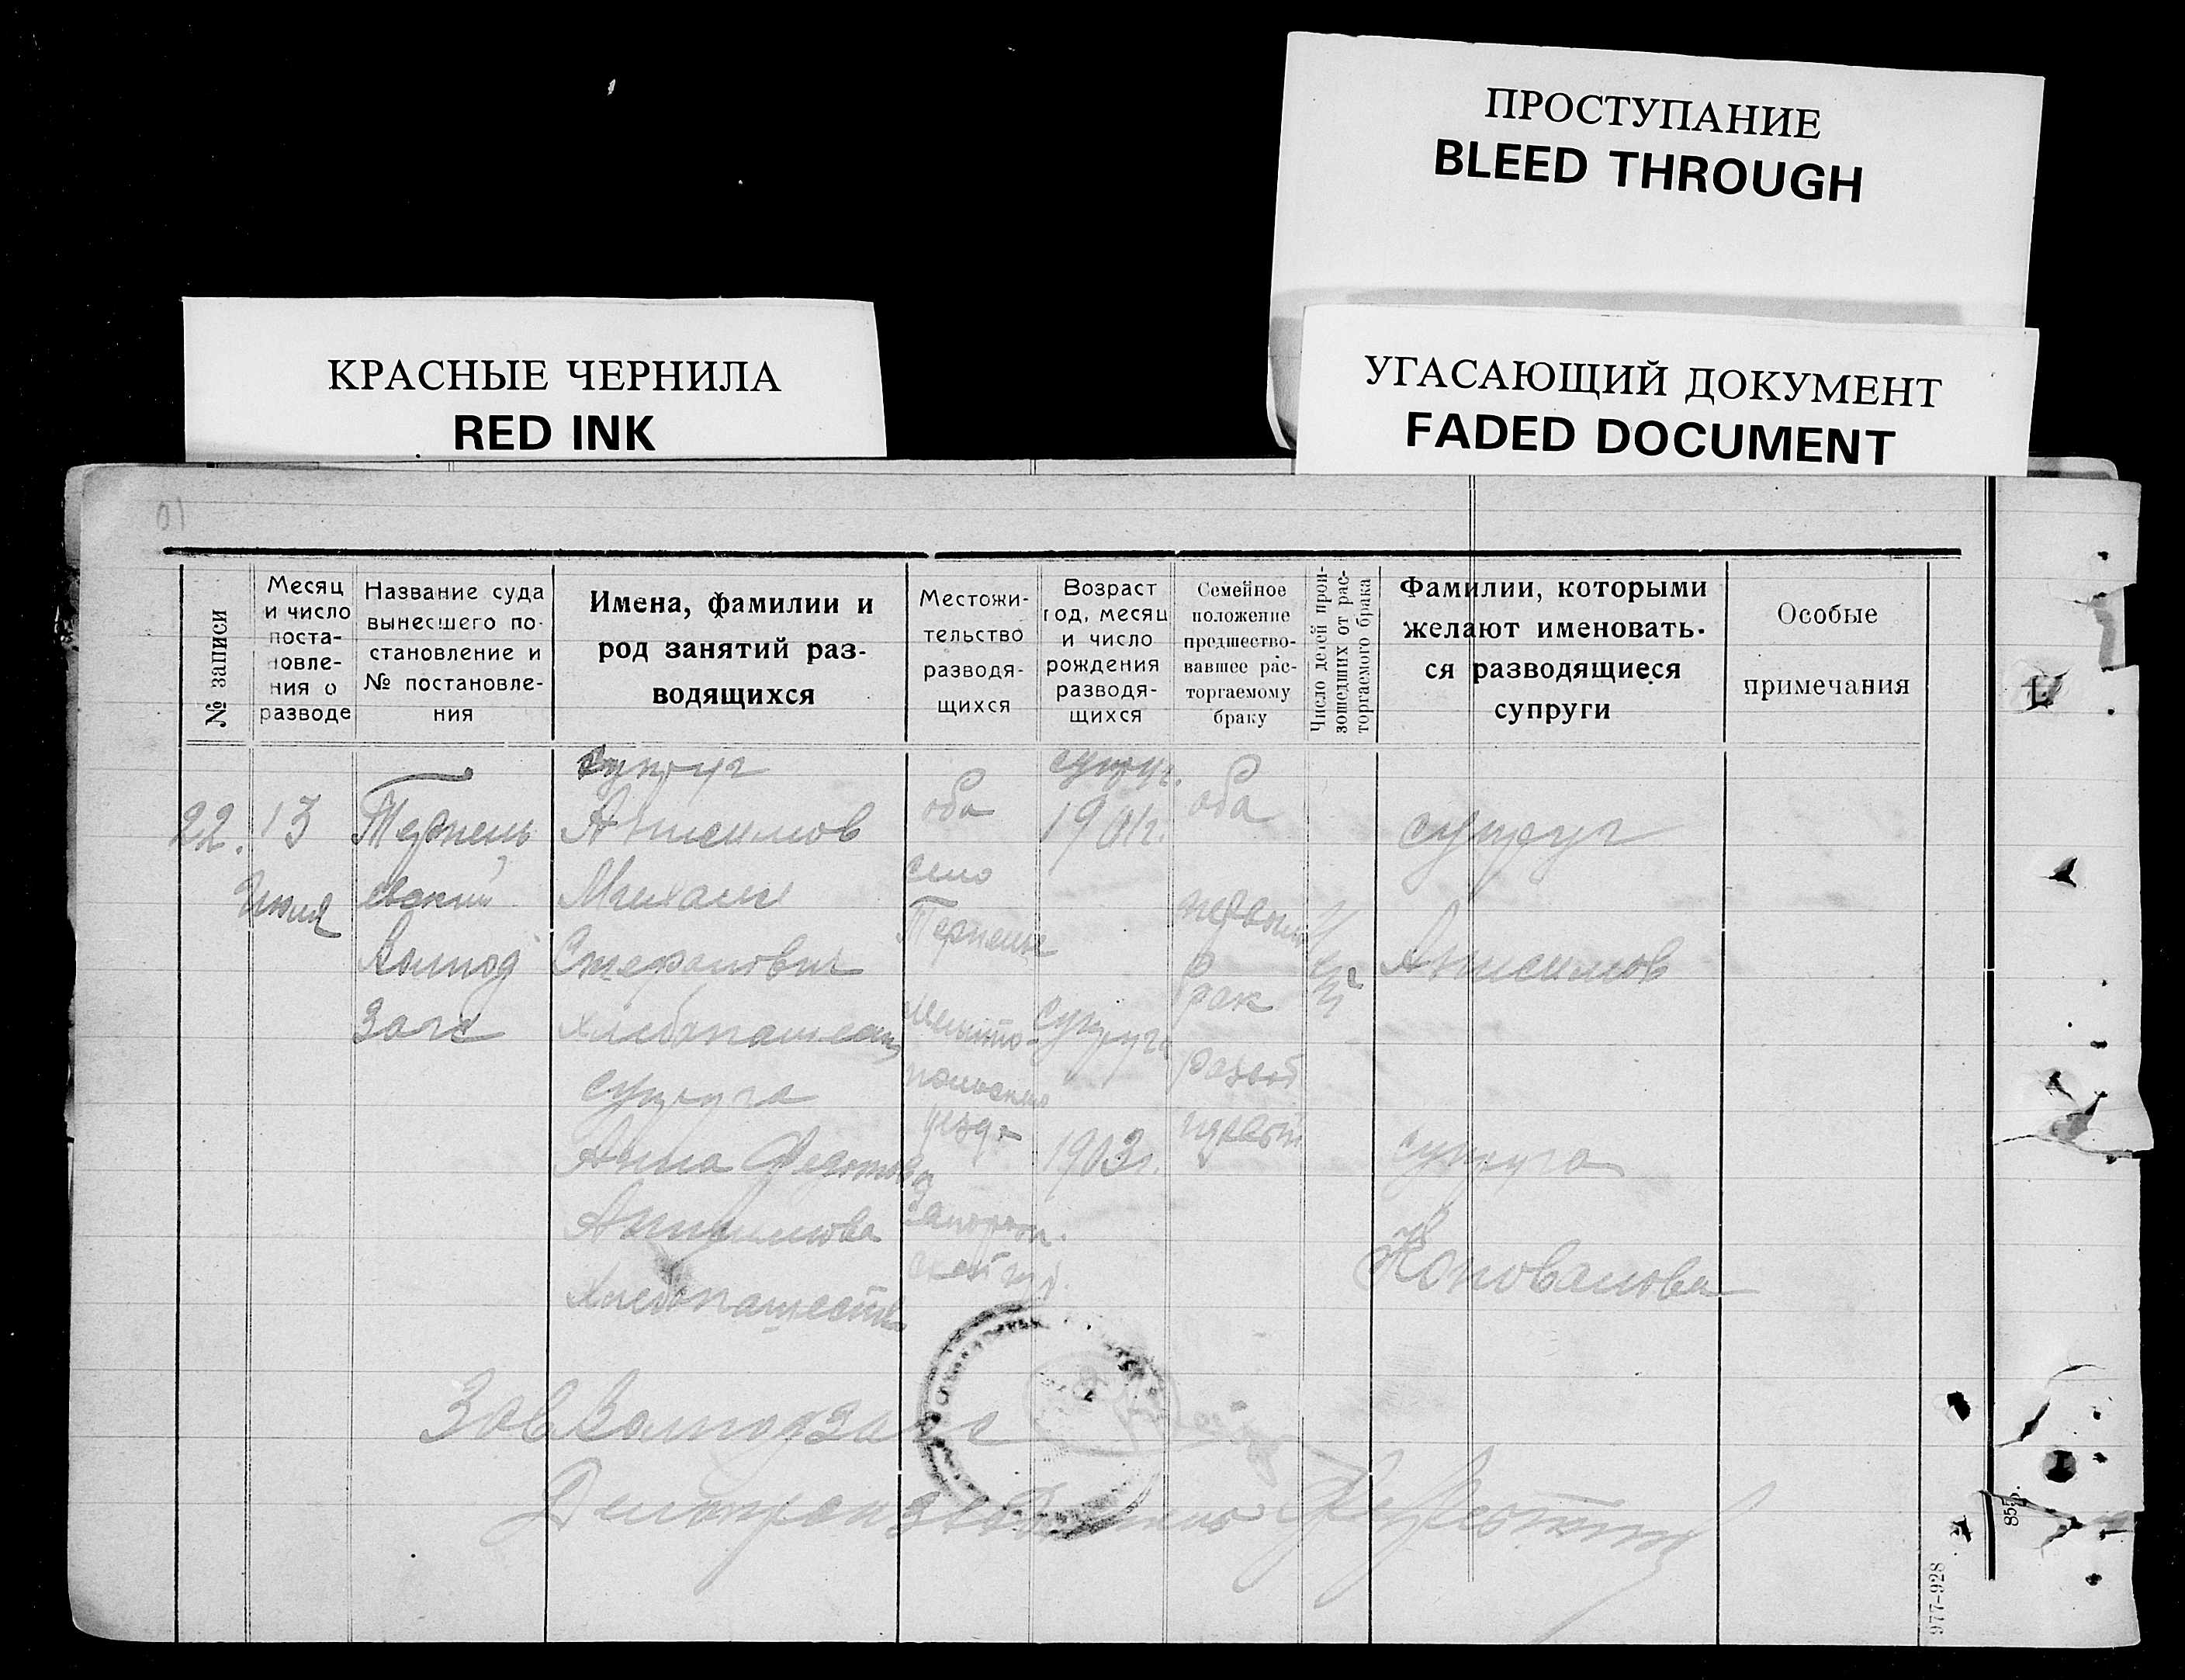 ПРОСТУПАНИЕ
BLEED THROUGH
КРАСНЫЕ ЧЕРНИЛА
RED INK
УГАСАЮЩИЙ ДОКУМЕНТ
FADED DOCUMENT
№ записи
Месяц
и число
поста-
новле-
ния о
разводе
Название суда
вынесшего по-
становление и
№ постановле-
ния
Имена, фамилии и
род занятий раз-
водящихся
Местожи-
тельство
разводя-
щихся
Возраст
год, месяц
и число
рождения
разводя-
щихся
Семейное
положение
предшество-
вавшее рас-
торгаемому
браку
Число детей прои-
зошедших от рас-
торгаемого брака
Фамилии, которыми
желают именовать-
ся разводящиеся
супруги
Особые
примечания
22.
13
Терпень
евский
Волпод
Загс
супруг
Анисимов
Михаил
хлебопашество
супруга
Анна
Анисимова
Хлебопашество
оба
село
Терпенье
супруг.
1901г.
супруга
1903г.
оба
первый
брак
развод
первый
супруг
Анисимов
супруга
Коновалова
Зав Волподзагс
977-928
855.